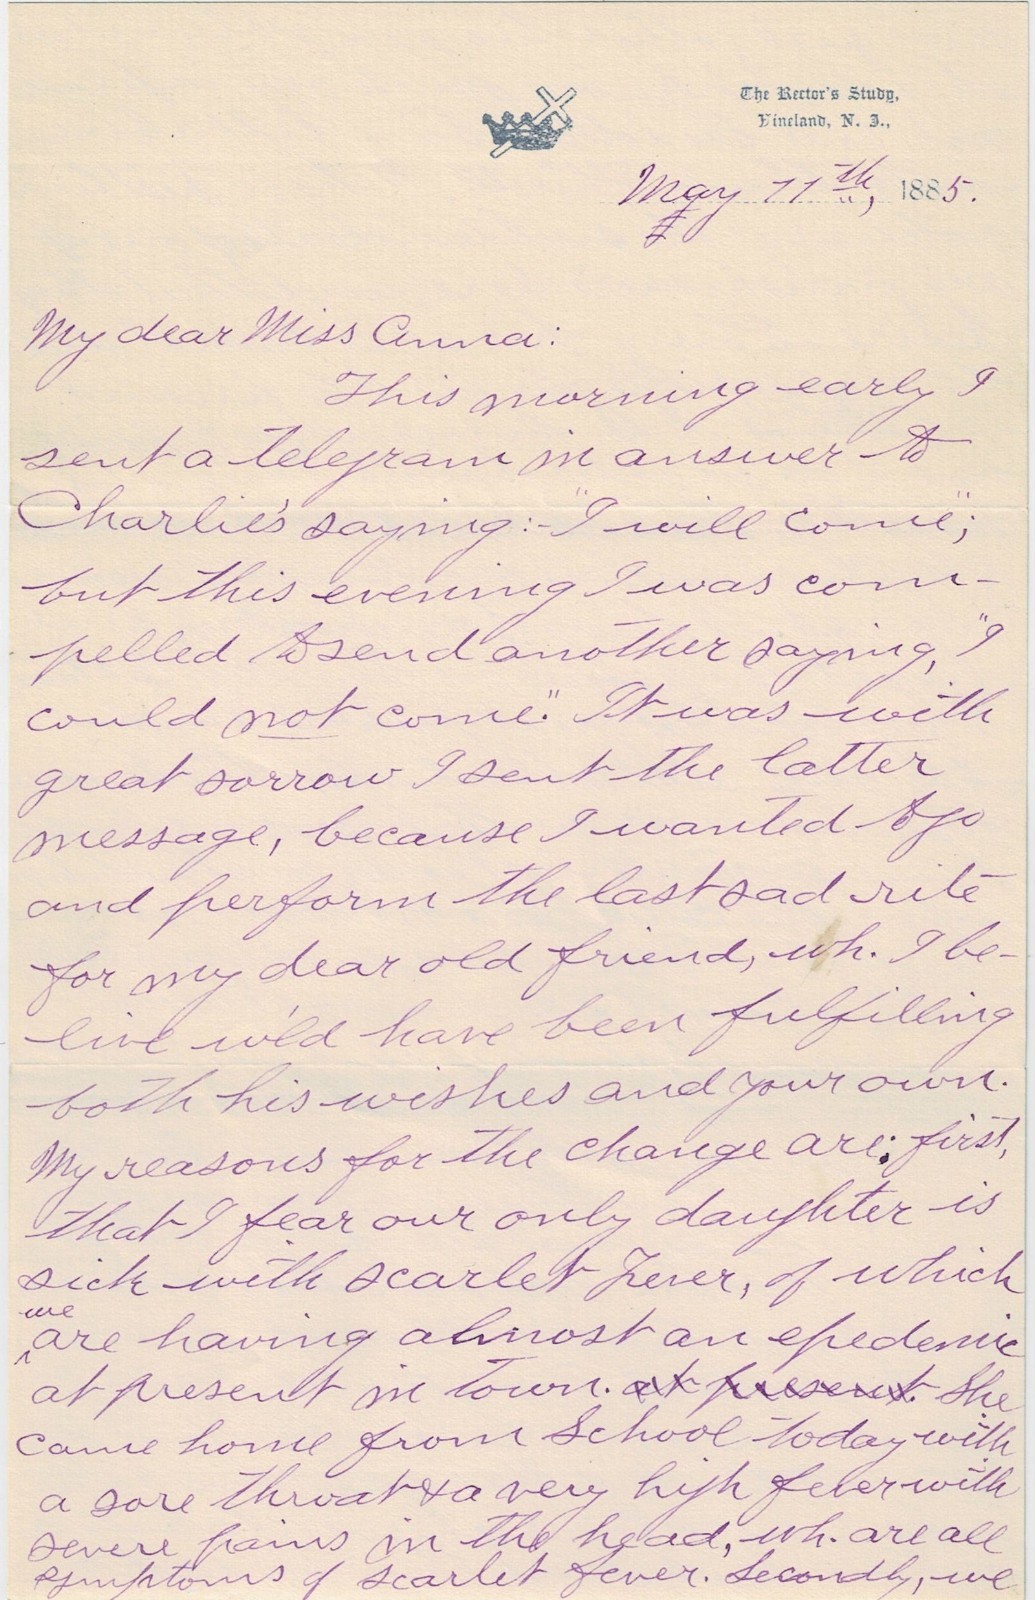 The Rector's Study,
Vineland, N. J.,
May 11th, 1885.
My dear Miss Anna:
This morning early I
sent a telegram in answer to
Charlie's saying:- "I will come";
but this evening I was com-
pelled to send another saying, "I
could not come." It was with
great sorrow I sent the latter
message, because I wanted to go
and perform the last sad rite
for my dear old friend, wh. I be-
live w'ld have been fulfilling
both his wishes and your own.
My reasons for the change are: first,
that I fear our only daughter is
sick with scarlet fever, of which
we
are having almost an epedemic
at present in town. at present. She
came home from School today with
a sore throat & a very high fever with
severe pains in the head, wh. are all
symptoms of scarlet fever. Secondly, we